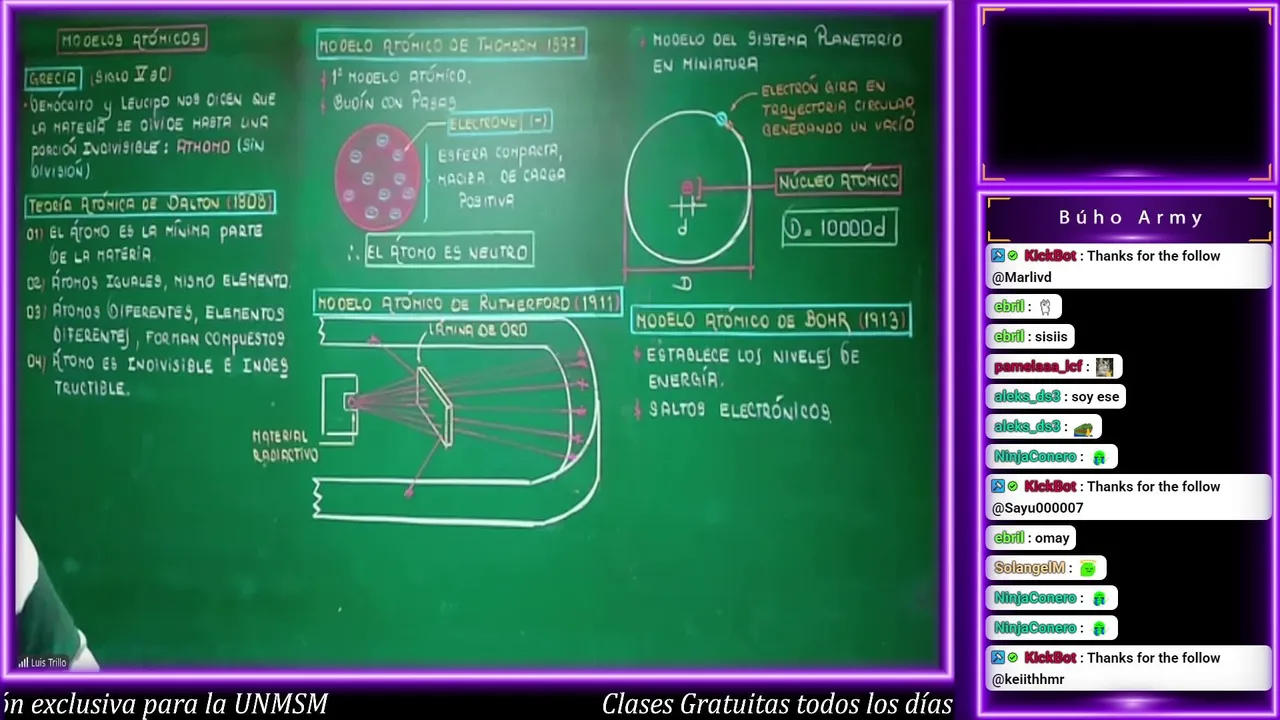 MODELOS ATÓMICOS
GRECIA (SIGLO V aC)
• DEMÓCRITO Y LEUCIPO NOS DICEN QUE
LA MATERIA SE DIVIDE HASTA UNA
PORCIÓN INDIVISIBLE : ATHOMO (SIN
DIVISIÓN)
TEORÍA ATÓMICA DE DALTON (1808)
01) EL ÁTOMO ES LA MÍNIMA PARTE
DE LA MATERIA.
02) ÁTOMOS IGUALES, MISMO ELEMENTO.
03) ÁTOMOS DIFERENTES, ELEMENTOS
DIFERENTES, FORMAN COMPUESTOS
04) ÁTOMO ES INDIVISIBLE E INDES
TRUCTIBLE.
MODELO ATÓMICO DE THOMSON 1897
1º MODELO ATÓMICO.
BUDÍN CON PASAS
ELECTRONES (-)
ESFERA COMPACTA,
MACIZA DE CARGA
POSITIVA
∴ EL ÁTOMO ES NEUTRO
MODELO ATÓMICO DE RUTHERFORD (1911)
LÁMINA DE ORO
MATERIAL
RADIACTIVO
MODELO DEL SISTEMA PLANETARIO
EN MINIATURA
ELECTRÓN GIRA EN
TRAYECTORIA CIRCULAR,
GENERANDO UN VACÍO
NÚCLEO ATÓMICO
d
D = 10000d
D
MODELO ATÓMICO DE BOHR (1913)
ESTABLECE LOS NIVELES DE
ENERGÍA.
SALTOS ELECTRÓNICOS.
Luis Trillo
Búho Army
KickBot : Thanks for the follow
@Marlivd
ebril :
ebril : sisiis
pamelaaa_lcf :
aleks_ds3 : soy ese
aleks_ds3 :
NinjaConero :
KickBot : Thanks for the follow
@Sayu000007
ebril : omay
SolangelM :
NinjaConero :
NinjaConero :
KickBot : Thanks for the follow
@keiithhmr
ón exclusiva para la UNMSM
Clases Gratuitas todos los días